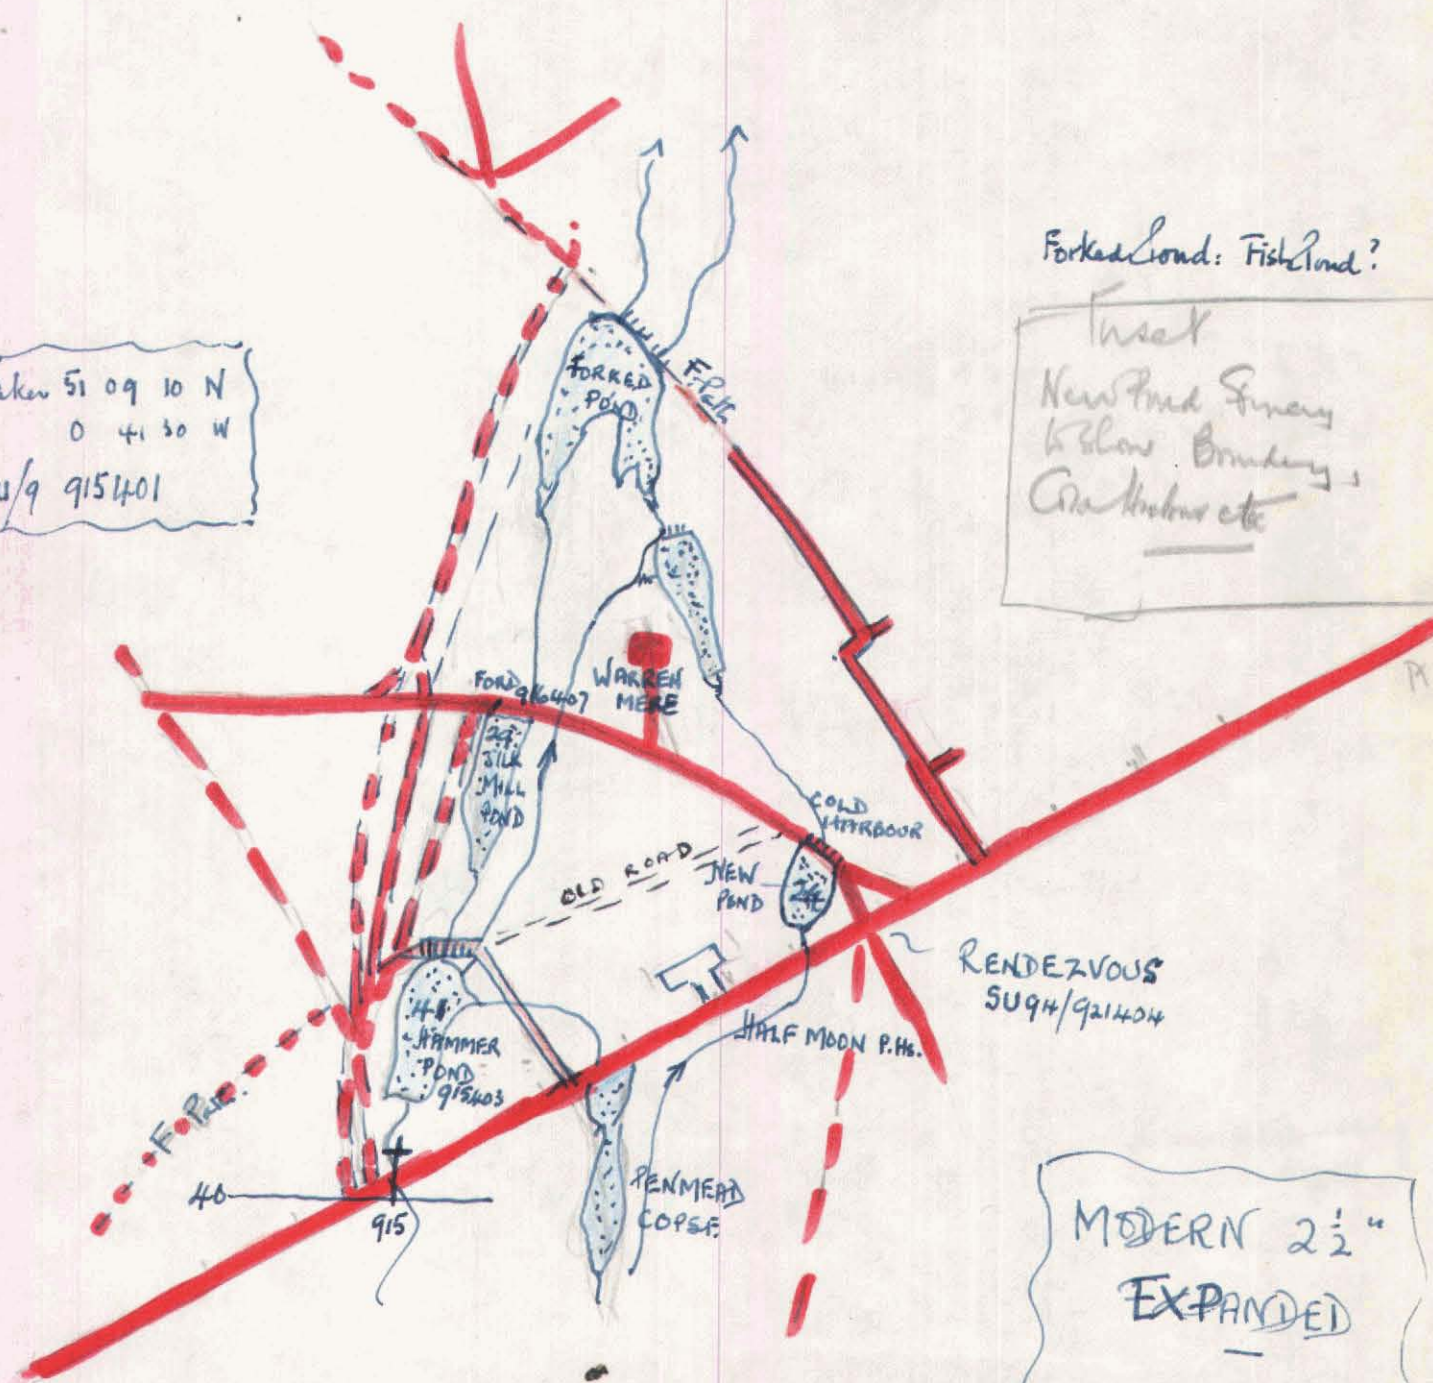 Forked Pond: Fish Pond?
Inset
New Pond
to Show Boundary,
51 09 10 N
0 41 30 W
915401
FORKED
POND
F. Path
FORD 916407
WARREN
MERE
24
SILK
MILL
POND
COLD
HARBOUR
OLD ROAD
NEW
POND
24
RENDEZVOUS
SU94/921404
HALF MOON P.Hs.
HAMMER
POND
915403
F. Path.
40
915
PENMEAD
COPSE.
MODERN 2½"
EXPANDED